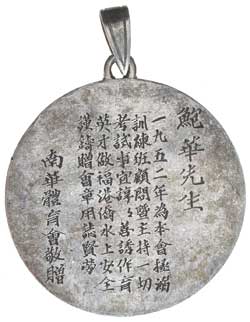 鮑華先生
一九五二年為本會拯溺
訓練班顧問暨主持一切
考試事宜諄々善誘作育
英才做福港僑水上安全
謹鑄贈會章用誌賢勞
南華體育會敬贈